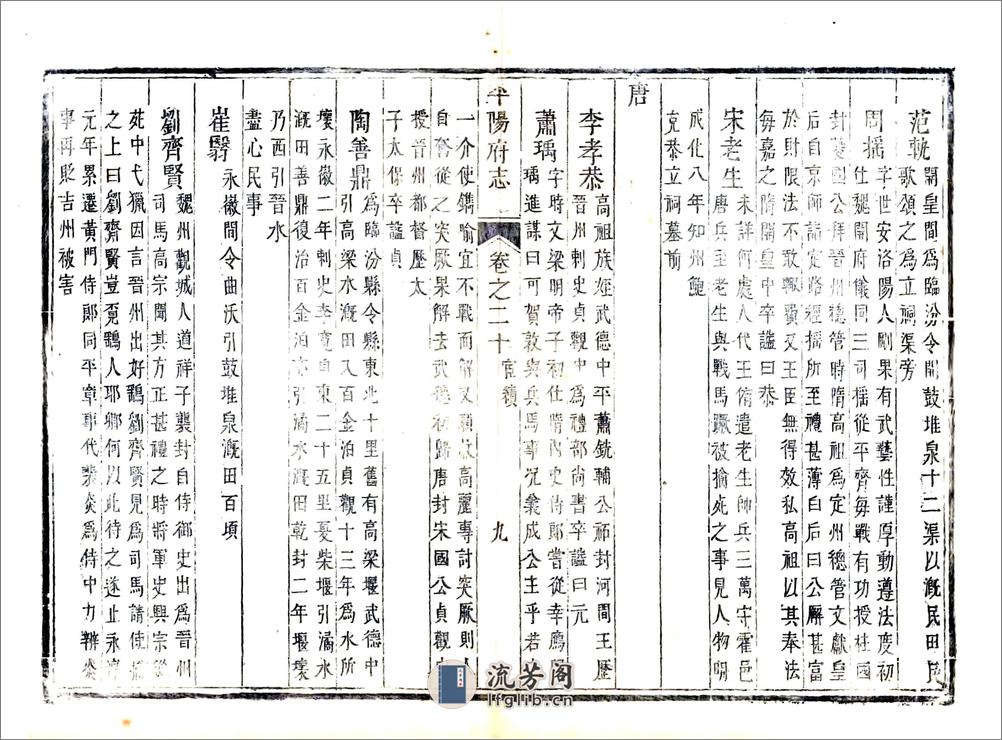 范軌開皇間爲臨汾令開鼓堆泉十二渠以溉民田民
歌頌之爲立祠渠旁
周搖字世安洛陽人剛果有武藝性謹厚動遵法度初
仕魏開府儀同三司搖從平齊每戰有功授柱國
封夔國公拜晉州總管時隋高祖爲定州總管文獻皇
后自京師詣定路經搖所至禮甚薄白后曰公廨甚富
於財限法不敢輒費又王臣無得效私高祖以其奉法
每嘉之隋開皇中卒諡曰恭
宋老生未詳何處人代王侑遣老生帥兵三萬守霍邑
唐兵至老生與戰馬躓被擒死之事見人物明
成化八年知州鮑
克恭立祠墓前
唐
李孝恭高祖族姪武德中平蕭銑輔公祏封河間王歷
晉州刺史貞觀中爲禮部尚書卒諡曰元
蕭瑀字時文梁明帝子初仕隋內史侍郎嘗從幸鴈門
瑀進謀曰可賀敦與兵馬事况義成公主乎若
平陽府志 卷之二十 宦績 九
一介使鐫喻宜不戰而解又願赦高麗專討突厥則人
自奮從之突厥果解去武德初歸唐封宋國公貞觀中
授晉州都督歷太
子太保卒諡貞
陶善鼎爲臨汾縣令縣東北十里舊有高梁堰武德中
引高梁水溉田又百金泊貞觀十三年爲水所
壞永徽二年刺史李寬自東二十五里夏柴堰引潏水
溉田善鼎復治百金泊亦引潏水溉田乾封二年堰壞
乃西引晉水
盡心民事
崔翳永徽間令曲沃引鼓堆泉溉田百頃
劉齊賢魏州觀城人道祥子襲封自侍御史出爲晉州
司馬高宗聞其方正甚禮之時將軍史興宗從
苑中弋獵因言晉州出好鷂劉齊賢見爲司馬請使捕
之上曰劉齊賢豈覓鷂人耶卿何以此待之遂止永淳
元年累遷黃門侍郎同平章事代裴炎爲侍中力辨炎
事再貶吉州被害
流芳阁
lfglib.cn.com